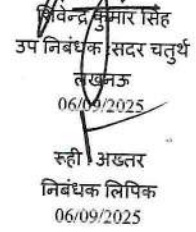 शिवेन्द्र कुमार सिंह
उप निबंधक :सदर चतुर्थ
लखनऊ
06/09/2025
रूही अख्तर
निबंधक लिपिक
06/09/2025